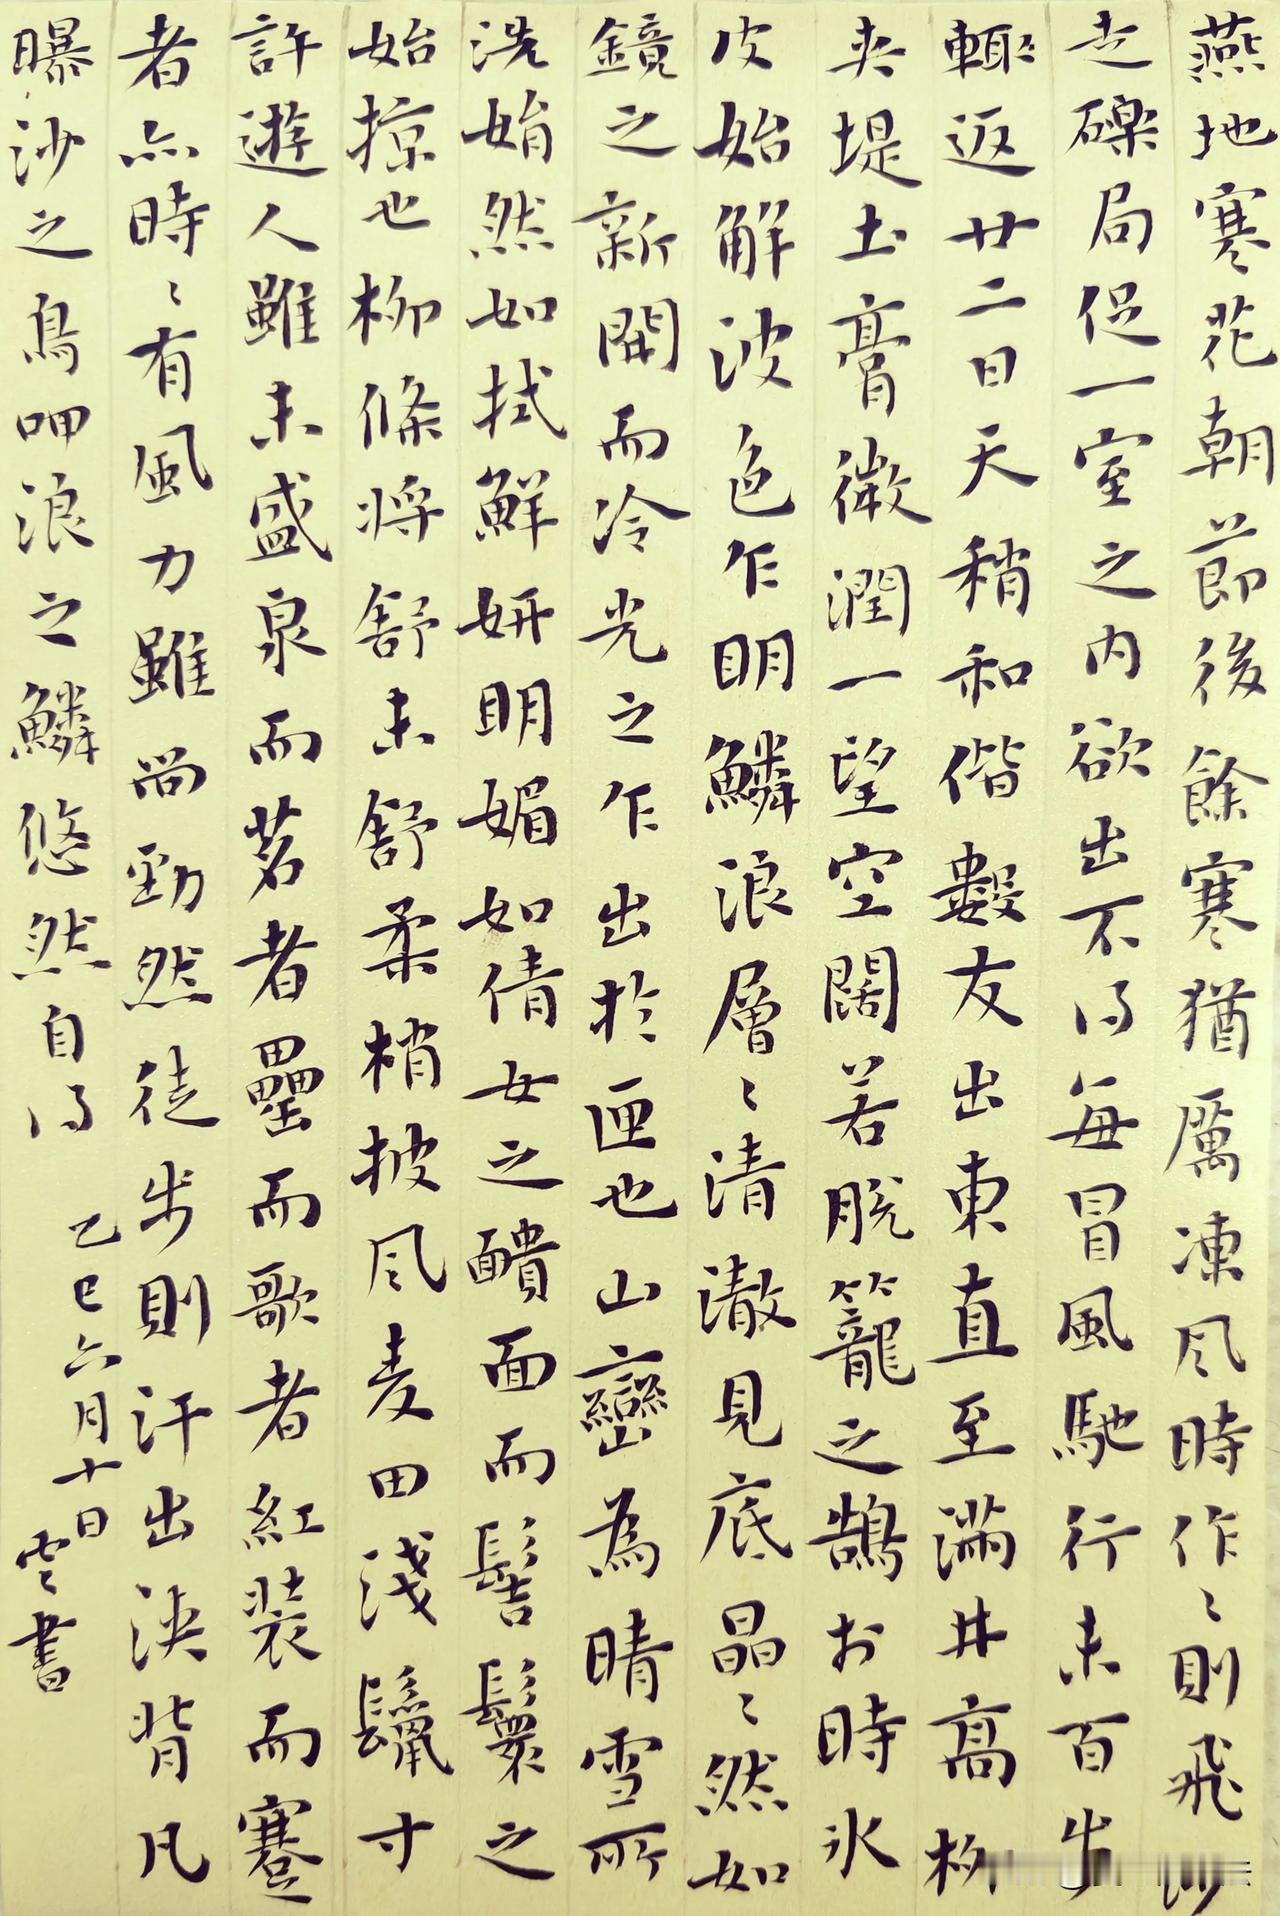 燕地寒花朝節後餘寒猶厲凍风時作〻則飛沙
走礫局促一室之內欲出不得每冒風馳行未百步
輒返廿二日天稍和偕數友出東直至滿井高柳
夹堤土膏微潤一望空闊若脫籠之鵠於時氷
皮始解波色乍明鱗浪層〻清澈見底晶〻然如
鏡之新開而冷光之乍出於匣也山巒為晴雪所
洗娟然如拭鮮妍明媚如倩女之靧面而髻鬟之
始掠也柳條将舒未舒柔梢披风麦田淺鬣寸
許遊人雖未盛泉而茗者罍而歌者紅裝而蹇
者亦時〻有風力雖尚勁然徒步則汗出浹背凡
曝沙之鳥呷浪之鱗悠然自得
乙巳六月十日 雲書